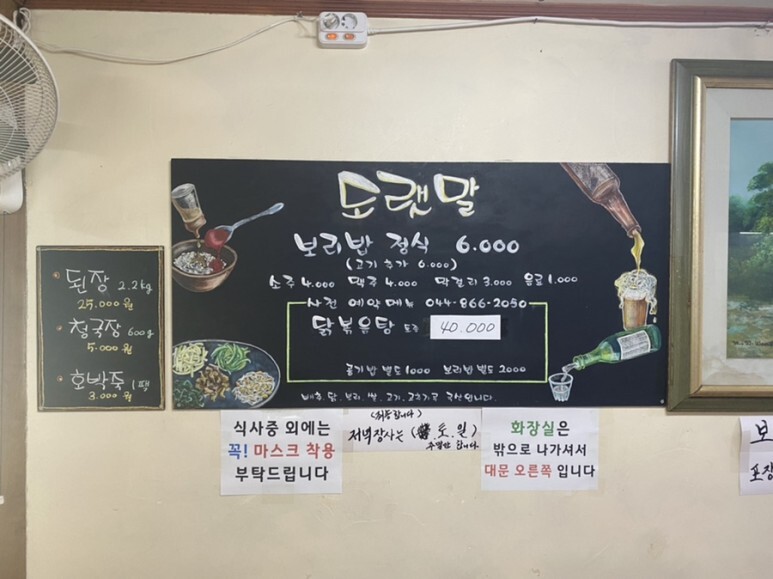 도랫말
보리밥 정식 6.000
(고기 추가 6.000)
소주 4.000 맥주 4.000 막걸리 3.000 음료 1.000
사전 예약메뉴 044-866-2050
닭볶음탕 토종 40.000
공기밥 별도 1000 보리밥 별도 2000
배추, 닭, 보리, 쌀, 고기, 고추가루 국산입니다.
된장 2.2kg
25.000원
청국장 600g
5.000원
호박죽 1팩
3.000원
식사중 외에는
꼭! 마스크 착용
부탁드립니다
저녁장사는 ( .토.일)
주말만 합니다
화장실은
밖으로 나가셔서
대문 오른쪽 입니다
보
포장